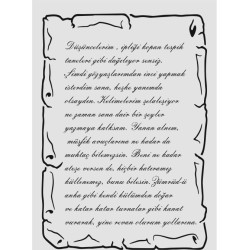 Düşüncelerim, ipliği kopan tespih
taneleri gibi dağılıyor sensiz.
Şimdi gözyaşlarımdan inci yapmak
isterdim sana, keşke yanımda
olsaydın. Kelimelerim şelaleşiyor
ne zaman sana dair bir şeyler
yazmaya kalksam. Yanan alnım,
müşfik avuçlarına ne kadar da
muhtaç bilemezsin. Beni ne kadar
ateşe versen de, hiçbir hatıramız
küllenmez, bunu bilesin. Zümrüdü
anka gibi kendi külümden doğar
ve katar katar turnalar gibi kanat
vurarak, yine revan olurum yollarına.